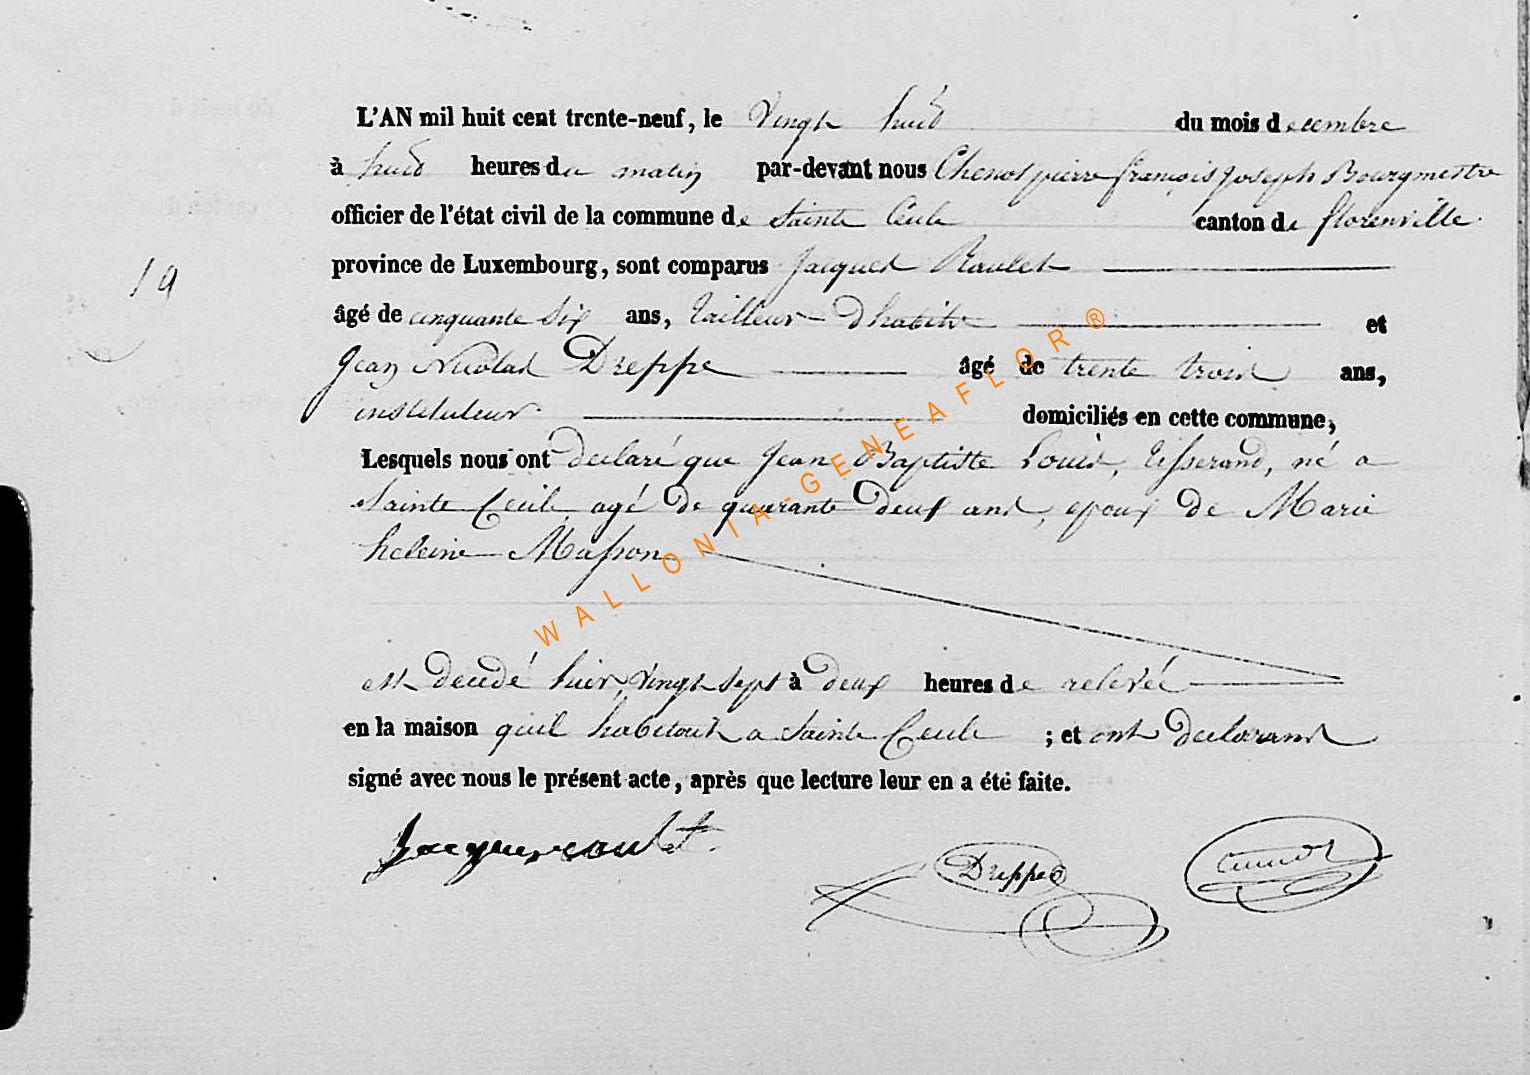 L'AN mil huit cent trente-neuf, le Vingt huit du mois decembre
à huit heures du matin par-devant nous Chenot pierre françois Joseph Bourgmestre
officier de l'état civil de la commune de Sainte Cecile canton de florenville
province de Luxembourg, sont comparus Jacques Raulet
19
âgé de cinquante six ans, tailleur d'habits et
Jean Nicolas Dreppe âgé de trente trois ans,
instituteur domiciliés en cette commune,
Lesquels nous ont declaré que Jean Baptiste Louis, tisserand, né a
Sainte Cecile agé de quarante deux ans, epoux de Marie
heleine Masson
est decedé hier, vingt sept à deux heures de relevée
en la maison qu'il habitait a Sainte Cecile ; et ont declarants
signé avec nous le présent acte, après que lecture leur en a été faite.
Jacques raulet Dreppe
WALLONIA-GENEAFLOR ®